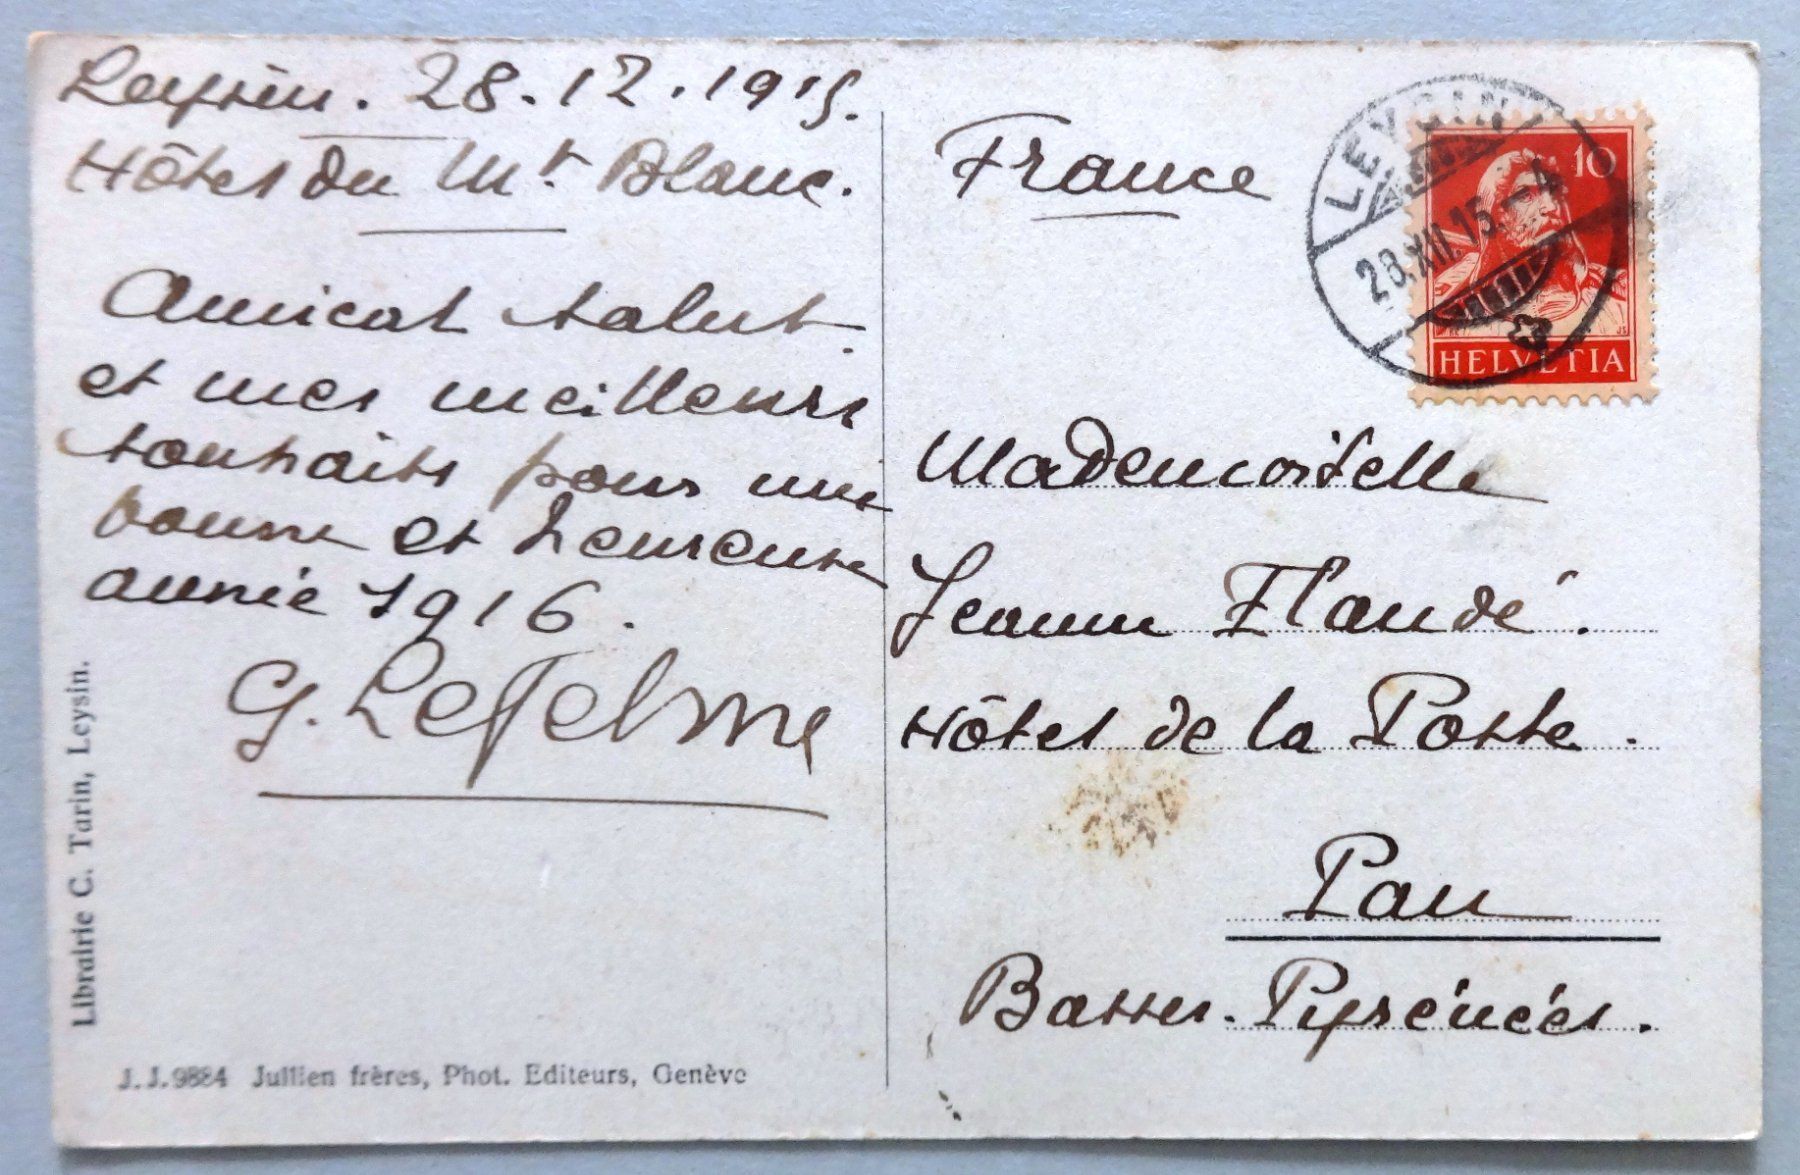 Leysin. 28.12.1915.
Hôtel du Mt Blanc.
Amical salut
et mes meilleurs
souhaits pour une
bonne et heureuse
année 1916.
G. Lefelme
Librairie C. Tarin, Leysin.
J.J.9884 Jullien frères, Phot. Editeurs, Genève
France
LEYSIN
28.XII.15.-4
10
HELVETIA
Mademoiselle
Jeanne Flandé.
Hôtel de la Poste.
Pau
Basses-Pyrénées.